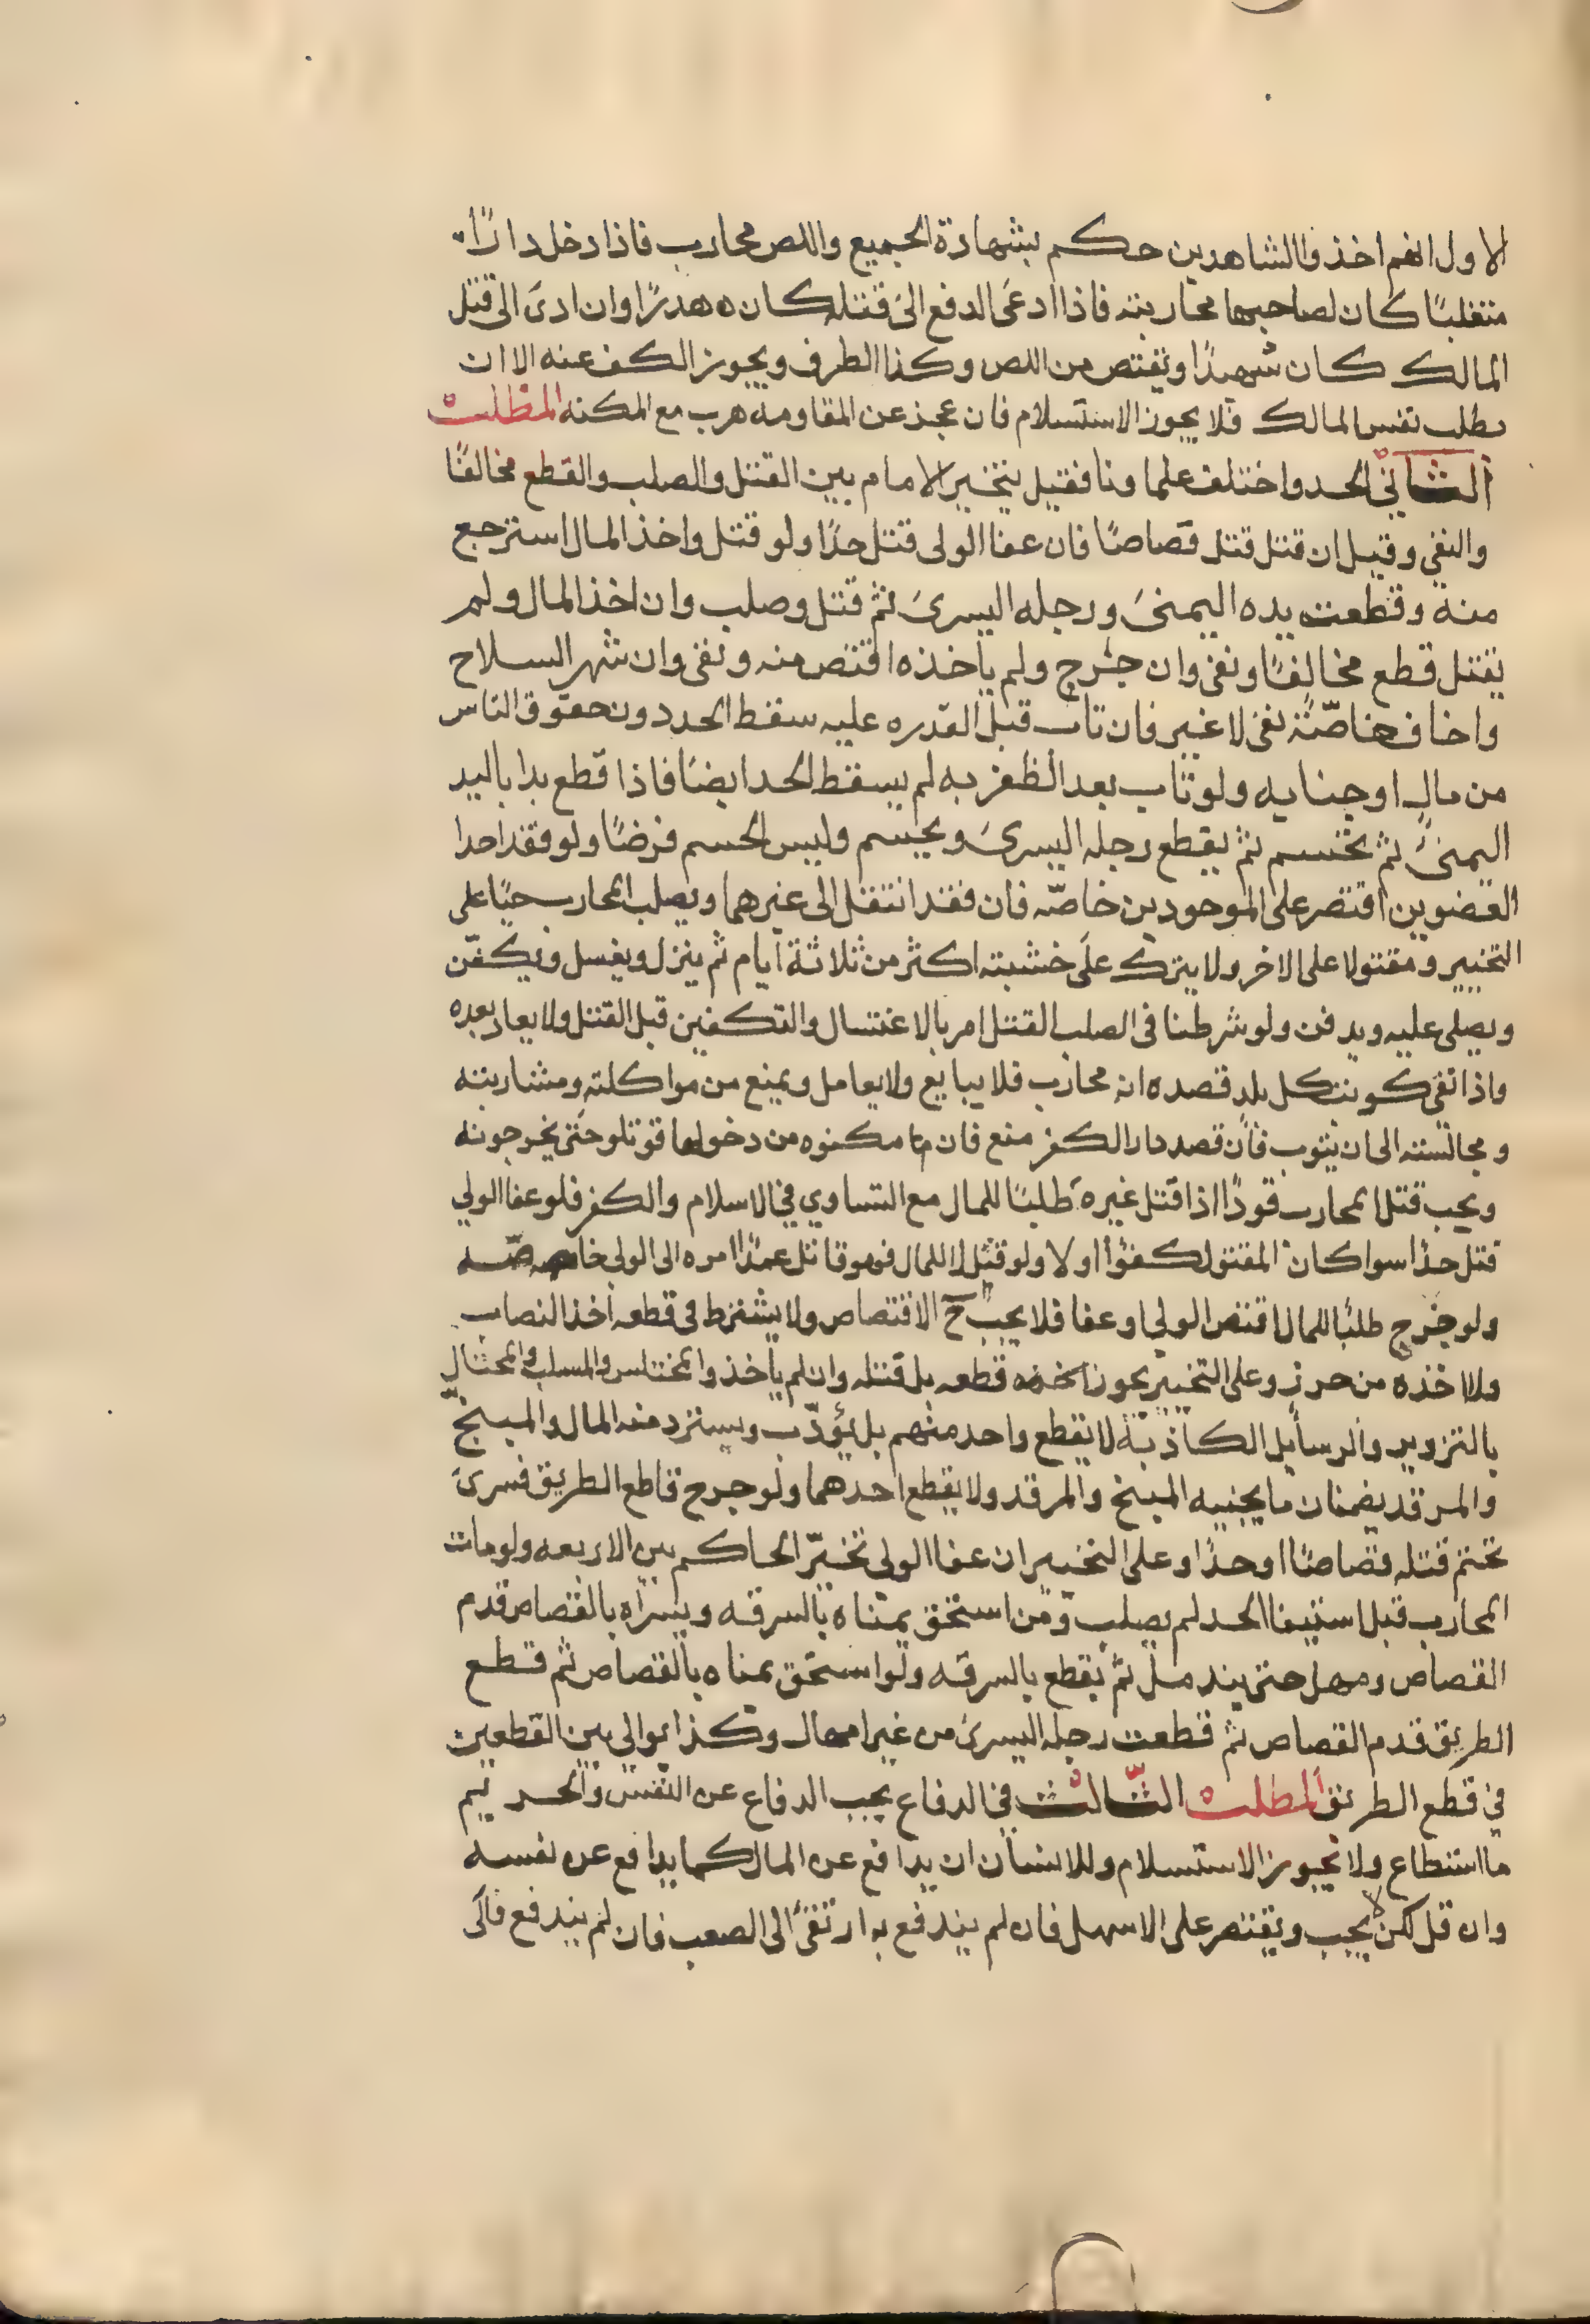 الاول انهم اخذوا الشاهدين حكم بشهادة الجميع واللص محارب فاذا دخل دارًا
متغلبًا كان لصاحبها محاربته فاذا ادعى الدفع الى قتله كان هدرًا وان ادى الى قتل
المالك كان شهيدًا ويقتص من اللص وكذا الطرف ويجوز الكف عنه الا ان
يطلب نفس المالك فلا يجوز الاستسلام فان عجز عن المقاومة هرب مع المكنه المطلب
الثاني الحد واختلف علماونا فقيل يتخير الامام بين القتل والصلب والقطع مخالفًا
والنفي وقيل ان قتل قتل قصاصًا فان عفا الولى قتل حدًا ولو قتل واخذ المال استرجع
منه وقطعت يده اليمنى ورجله اليسرى ثم قتل وصلب وان اخذ المال ولم
يقتل قطع مخالفًا ونفى وان جرح ولم ياخذه اقتص منه ونفى وان شهر السلاح
واخاف خاصّة نفى لا غير فان تاب قبل القدره عليه سقط الحد دون حقوق الناس
من مال او جنايه ولو تاب بعد الظفر به لم يسقط الحد ايضًا فاذا قطع بدا باليد
اليمنى ثم تحسم ثم يقطع رجله اليسرى ويحسم وليس الحسم فرضًا ولو فقد احدا
العضوين اقتصر على الموجودين خاصّه فان فقد انتقل الى غيرهما ويصلب المحارب حيًا على
التخيير ومقتولا على الاخر ولا يترك على خشبته اكثر من ثلاثة ايام ثم ينزل ويغسل ويكفّن
ويصلى عليه ويدفن ولو شرطنا فى الصلب القتل امر بالاغتسال والتكفين قبل القتل ولا يعاد بعده
واذا نفى كوتب كل بلد قصده انه محارب فلا يبايع ولا يعامل ويمنع من مواكلته ومشاربته
ومجالسته الى ان يتوب فان قصد دار الكفر منع فان مكنوه من دخولها قوتلو حتى يخرجونه
ويجب قتل المحارب قودًا اذا قتل غيره طلبًا للمال مع التساوي في الاسلام والكفر فلو عفا الولي
قتل حدًا سوا كان المقتول كفؤا اولا ولو قتل لا للمال فهو قاتل عمدًا امره الى الولى خاصّه
ولو جرح طلبًا للمال اقتص الولي او عفا فلا يجب ح الاقتصاص ولا يشترط فى قطعه اخذ النصاب
ولا اخذه من حرز وعلى التخيير يجوز قطعه بل قتله وان لم ياخذ والمختلس والمسلب والمحتال
بالتزوير والرسايل الكاذبة لا يقطع واحد منهم بل يؤدّب ويسترد منه المال والمبنج
والمرقد يضمنان ما يجنيه المبنج والمرقد ولا يقطع احدهما ولو جرح قاطع الطريق فسرى
تحتم قتله قصاصًا او حدًا وعلى التخيير ان عفا الولى تخيّر الحاكم بين الاربعه ولو مات
المحارب قبل استيفا الحد لم يصلب ومن استحق يمناه بالسرقه ويسراه بالقصاص قدم
القصاص ومهل حتى يندمل ثم يقطع بالسرقه ولو استحق يمناه بالقصاص ثم قطع
الطريق قدم القصاص ثم قطعت رجله اليسرى من غير امهال وكذا يوالى بين القطعين
في قطع الطريق المطلب الثّالث في الدفاع يجب الدفاع عن النفس والحريم
ما استطاع ولا يجوز الاستسلام وللانسان ان يدافع عن المال كما يدافع عن نفسه
وان قل لكن لا يجب ويقتصر على الاسهل فان لم يندفع به ارتقى الى الصعب فان لم يندفع فالى